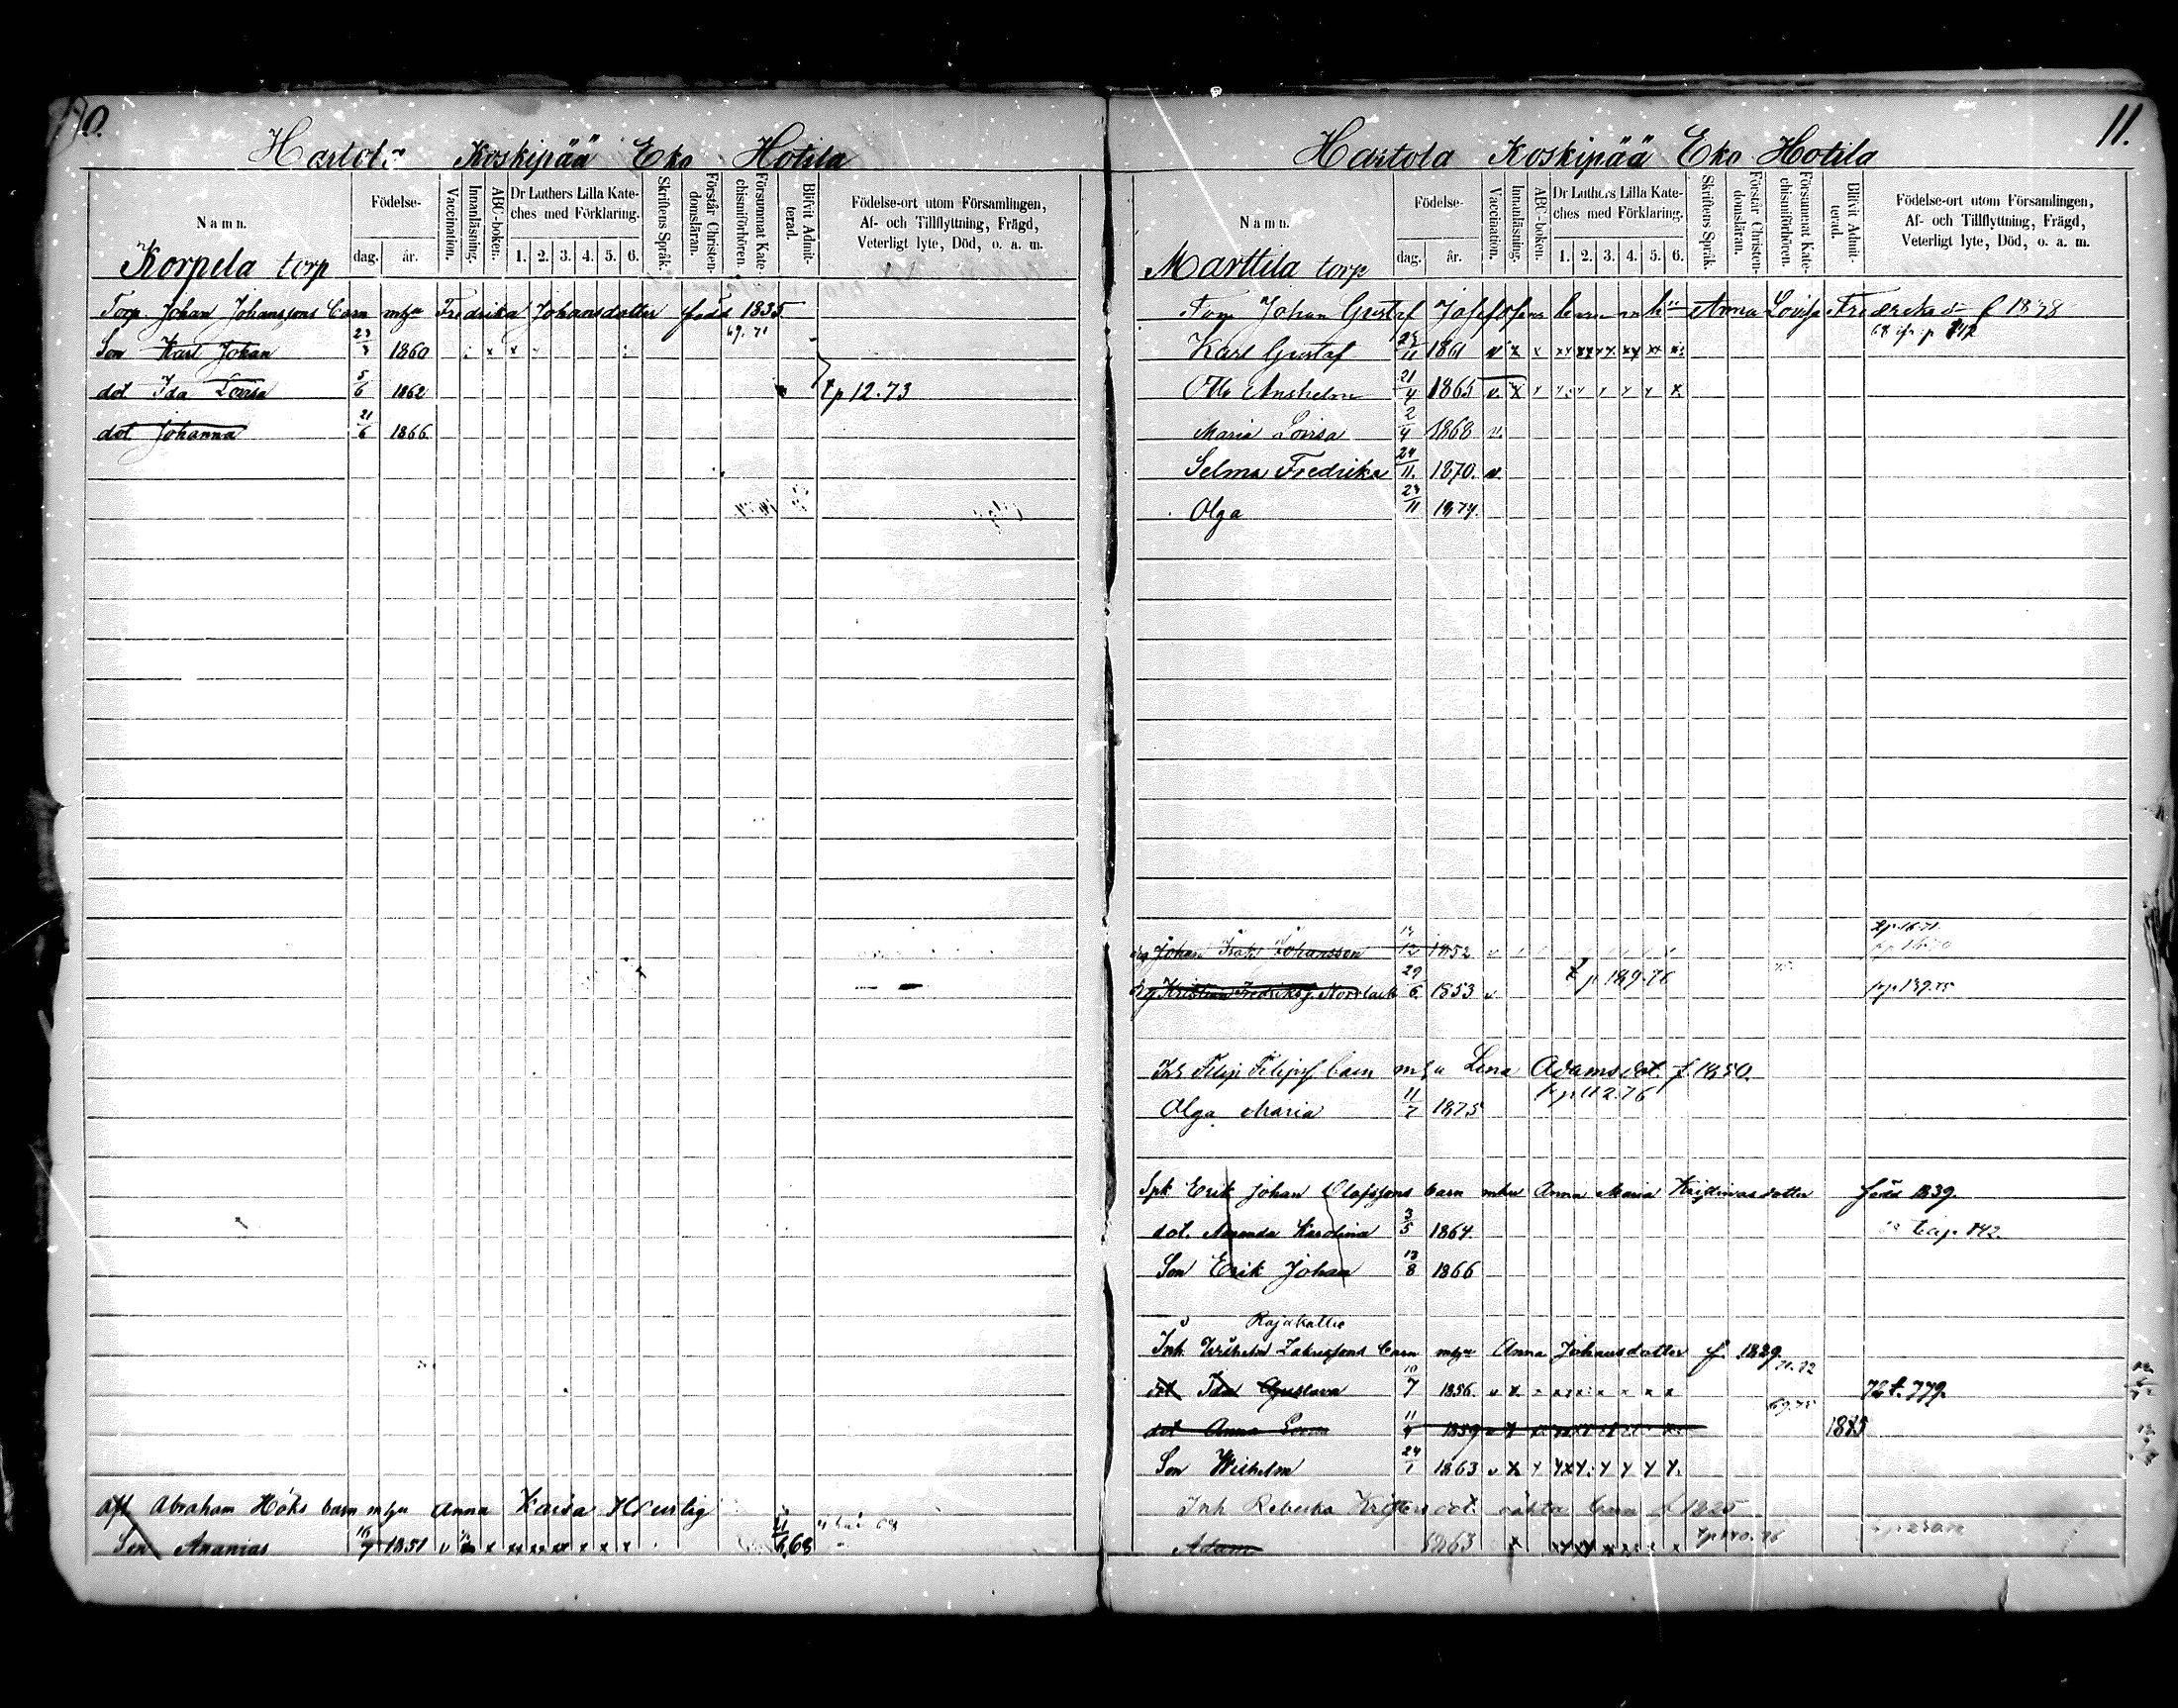 10.
Hartola Koskipää Eko Hotila
Namn.
Födelse-
dag. år.
Vaccination.
Innanläsning.
ABC-boken.
Dr Luthers Lilla Kate-
ches med Förklaring.
1. 2. 3. 4. 5. 6.
Skriftens Språk.
Förstår Christen-
domsläran.
Försummat Kate-
chismiförhören.
Blifvit Admit-
terad.
Födelse-ort utom Församlingen,
Af- och Tillflyttning, Frägd,
Veterligt lyte, Död, o. a. m.
Korpela torp
Torp. Johan Johanssons Barn m hu Fredrika Johansdotter född 1835
69. 71
Son Karl Johan 23/3 1860 x x
dot Ida Lovisa 5/6 1862 t p 12. 73
dot Johanna 21/6 1866
afl Abraham Höks barn m hu Anna Kaisa Heurlig
Son Ananias 16/7 1851 v x xx xx xx x x x 68
11.
Hartola Koskipää Eko Hotila
Namn.
Födelse-
dag. år.
Vaccination.
Innanläsning.
ABC-boken.
Dr Luthers Lilla Kate-
ches med Förklaring.
1. 2. 3. 4. 5. 6.
Skriftens Språk.
Förstår Christen-
domsläran.
Försummat Kate-
chismiförhören.
Blifvit Admit-
terad.
Födelse-ort utom Församlingen,
Af- och Tillflyttning, Frägd,
Veterligt lyte, Död, o. a. m.
Marttila torp
Torp Johan Gustaf Josefssons barn m h Anna Lovisa f 1838
Karl Gustaf 11 1861 v x x xx xx xx xx xx x
Otto Anshelm 21/4 1865 v x x x x x x x x
Maria Lovisa 2/4 1868 v.
Selma Fredrika 24/11 1870. v.
Olga 11 1874.
t p 16.71.
Johan Johansson 12 1852 v
t p 189.76
Kristian Fredriksf. 29/6 1853 v p 139.75
Inh Filip Filipsf barn m h u Lena Adamsdot. f. 1850.
p 112.76
Olga Maria 11/7 1875
Spk Erik Johan Olofssons barn m hu Anna Maria Kristinasdotter född 1839.
dot. Amanda Karolina 3/5 1864. p. 142.
Son Erik Johan 13/8 1866
Rajakallio
Inh. Wilhelm Zakrissons Barn m hu Anna Johansdotter f. 1829
71. 72
dot Ida Gustava 10/7 1856. v x x x x x x x x 72 t. 779.
69.75
dot Anna Lovisa 11/4 1859 v x 1875
Son Wilhelm 24/1 1863 v x x xxx x x x x x.
Inh Rebecka dot. oäkta barn f 1825
Adam 1863 x xx xx xx x x